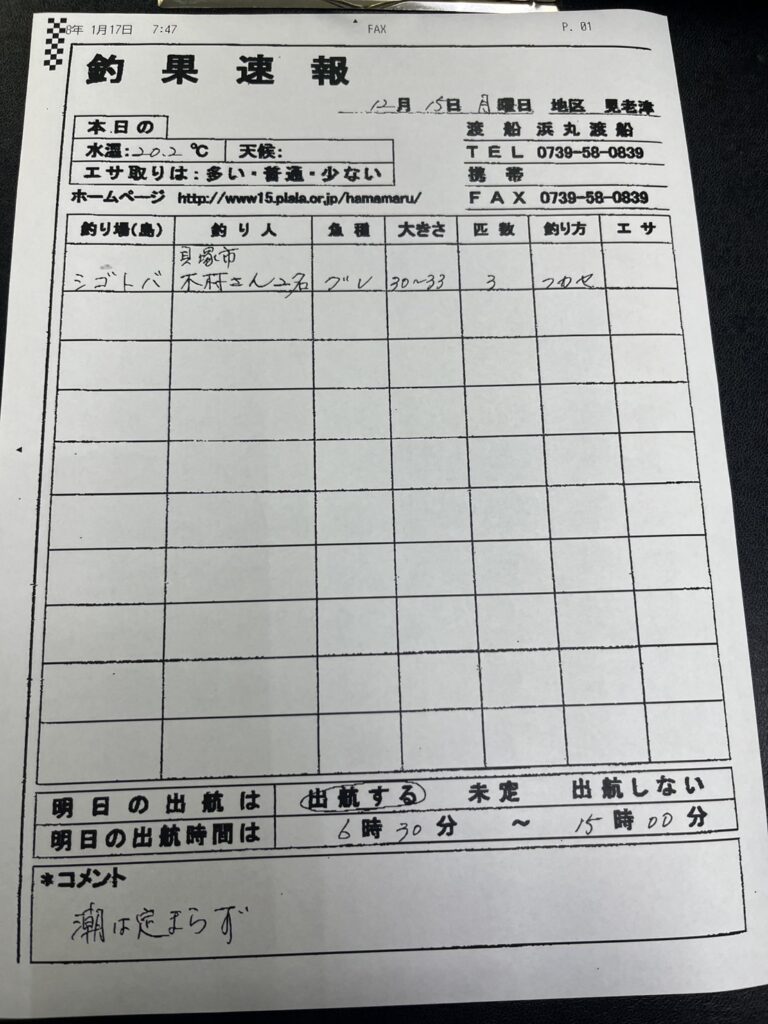 8年 1月17日 7:47 FAX P. 01
釣果速報
12月 15日 月曜日 地区 見老津
本日の
水温:20.2℃ 天候:
エサ取りは:多い・普通・少ない
渡船 浜丸渡船
TEL 0739-58-0839
携帯
ホームページ http://www15.plala.or.jp/hamamaru/ FAX 0739-58-0839
釣り場(島) 釣り人 魚種 大きさ 匹数 釣り方 エサ
貝塚市
シゴトバ 木村さん2名 グレ 30~33 3 フカセ
明日の出航は 出航する 未定 出航しない
明日の出航時間は 6時30分 ~ 15時00分
*コメント
潮は定まらず